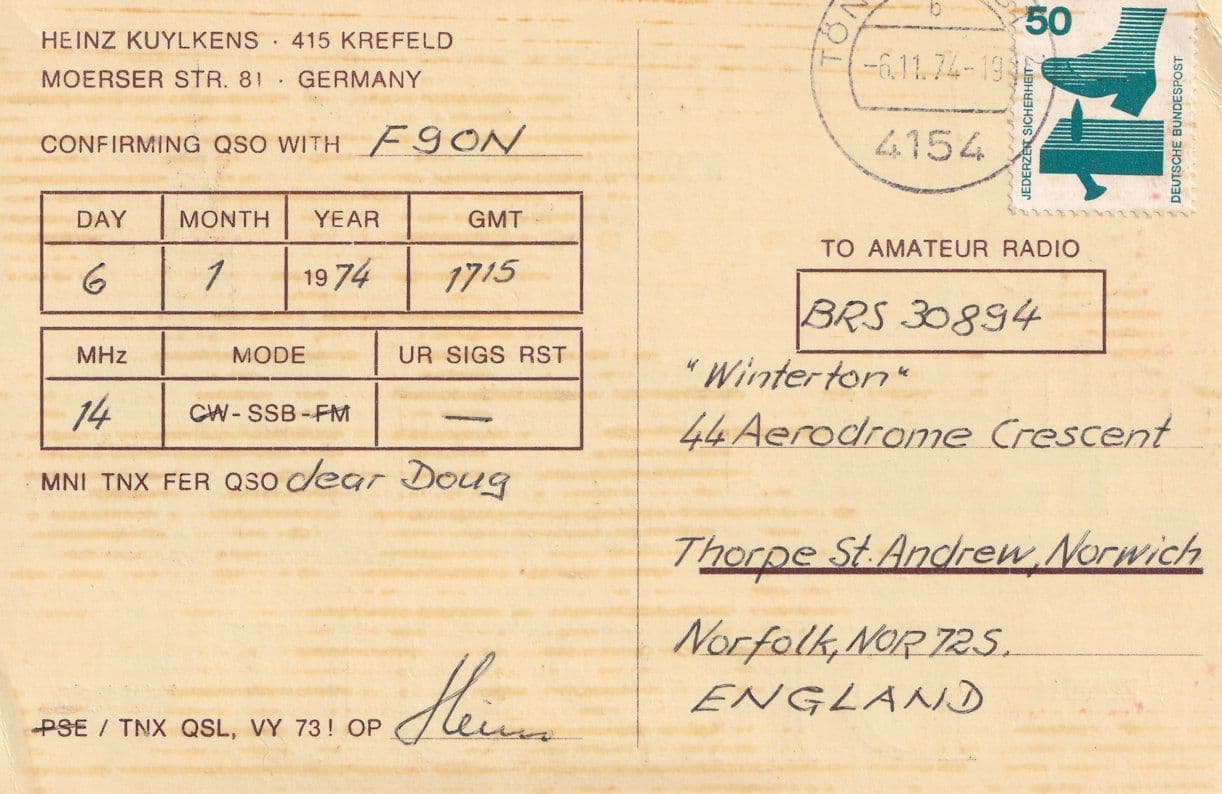 HEINZ KUYLKENS · 415 KREFELD
MOERSER STR. 81 · GERMANY
CONFIRMING QSO WITH F9ON
DAY MONTH YEAR GMT
6 1 1974 1715
MHz MODE UR SIGS RST
14 CW - SSB - FM —
MNI TNX FER QSO dear Doug
PSE / TNX QSL, VY 73! OP Heinz
TÖN
6
-6.11.74-19
4154
50
JEDERZEIT SICHERHEIT
DEUTSCHE BUNDESPOST
TO AMATEUR RADIO
BRS 30894
"Winterton"
44 Aerodrome Crescent
Thorpe St. Andrew, Norwich
Norfolk, NOR 72S.
ENGLAND